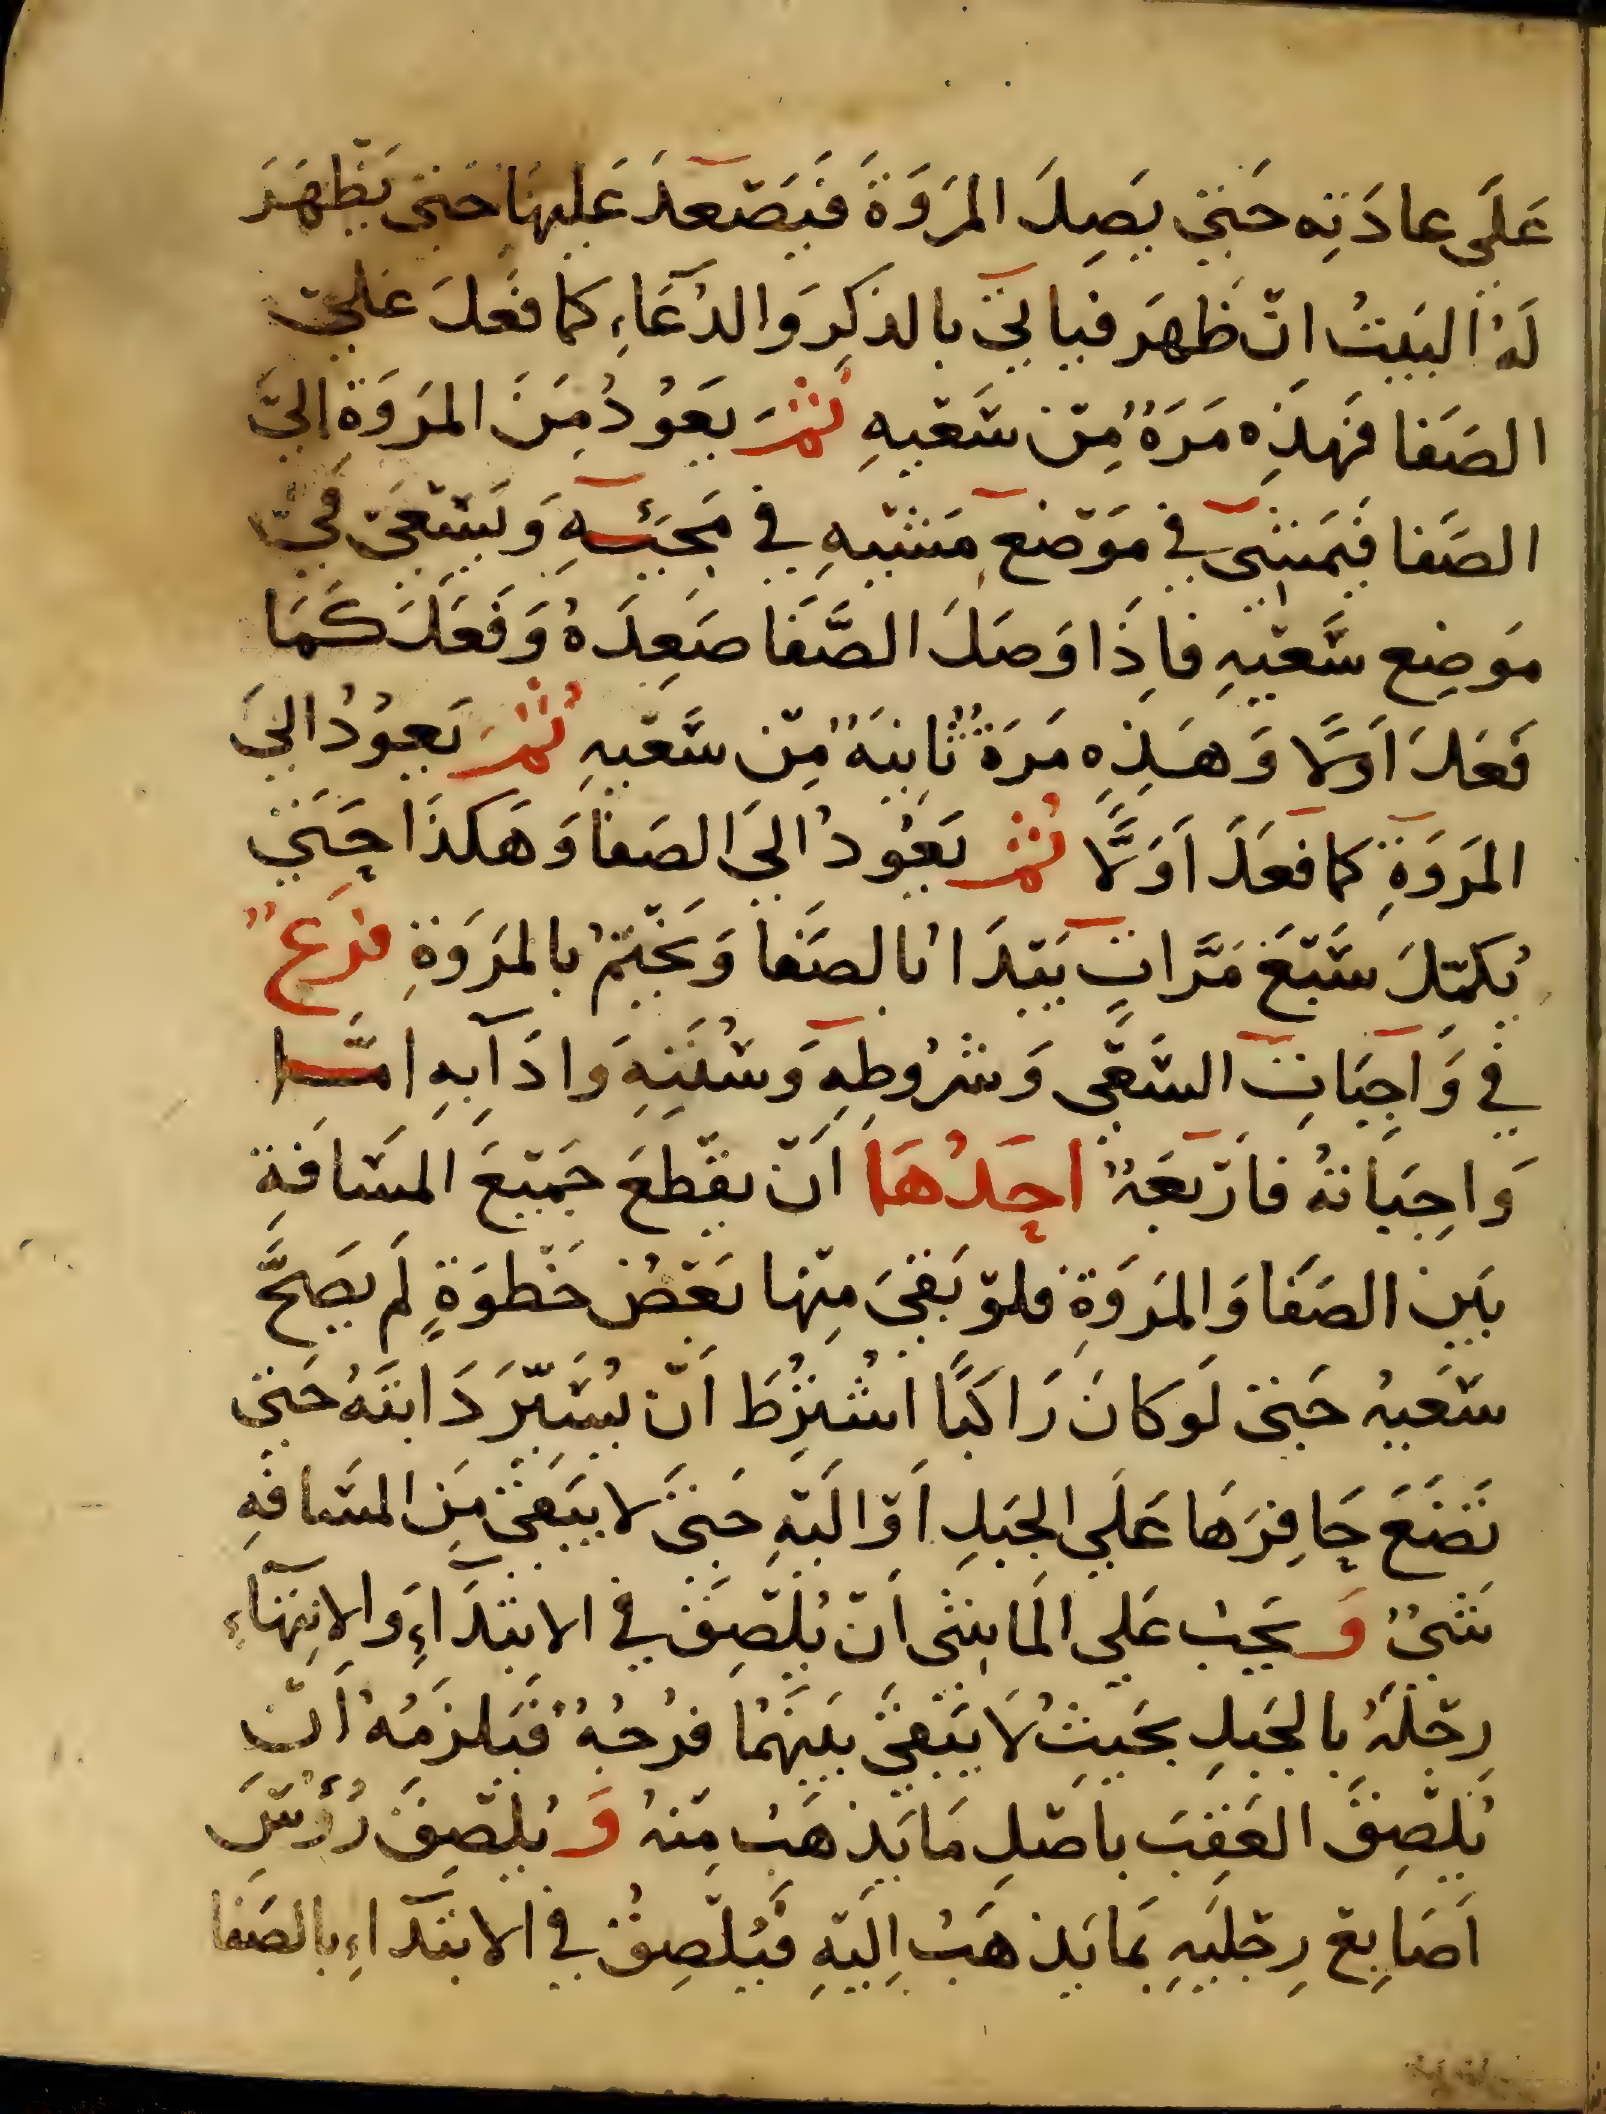 عَلَى عادَتِه حَتىٰ يَصِلَ المَروَةَ فَيَصْعدَ عَليهَا حَتىٰ يَظْهَرَ
لَهُ البَيتُ انْ ظَهَرَ فياتي بالذكِرِ وَالدُعَاءِ كما فَعَلَ عَلىٰ
الصَفا فَهذِه مَرَةٌ مِنْ سَعْيهِ ثمَ يَعَوُدُ مِنَ المَروَةِ اليَ
الصَفا فيَمَشىٰ في مَوْضعِ مَشْيهِ في مَجيئهِ وَيَسْعَىٰ في
مَوضِعِ سَعْيهِ فاِذَا وَصَلَ الصَّفَا صَعِدَهُ وَفَعَلَ كَمَا
فَعَلَ اَوَلًا وَهَذِهِ مَرَةٌ ثانيَةٌ مِنْ سَعْيهِ ثُمَ يَعوُدُ اليَ
المَروَةِ كما فَعَلَ اَوَلًا ثمُ يَعوُدُ اليَ الصَفا وَهَكذَا حَتىٰ
يُكمّلَ سَبْعَ مَرَّاتٍ يَبْدَاُ بالصَفا وَيَخْتمُ بالمَروَةِ فرَعٌ
في وَاجِبَاتِ السَعْى وَشرُوطِهِ وَسُنَنِهِ وَادَآبِهِ امَّا
وَاجِبَاتهُ فاَرْبَعَةٌ احَدُهَا اَنْ يقْطعَ جَميْعَ المَسَافَةِ
بَينَ الصَفَا وَالمَروَةِ فلوْ بَقيَ مِنْها بَعْضُ خَطْوَةٍ لَم يَصَحَّ
سَعَيهُ حَتىٰ لَو كانَ رَاكبًا اشُترِطَ اَنْ يُسَيّرَ دَابتَهُ حَتىٰ
تَضَعَ حَافِرَهَا عَلَى الجَبَلِ اَوْ الَيْهِ حَتىٰ لا يَبَقىٰ مِنَ المَسَافَهِ
شَيٌ وَيَجبُ عَلي المَاشى اَنْ يُلْصِقَ في الابْتدَاءِ وَالانِتهَآءِ
رِجْلَهُ بالجَبلِ بحَيثُ لَا يَبْقىٰ بَينَهُمَا فرُجهٌ فَيَلزَمُهُ اَنْ
يُلْصِقَ العَقِبَ باصْلِ مَا يَذهَبُ مِنْهُ وَيُلْصِقَ رُؤُسَ
اَصَابِعَ رِجْلَيهِ بمَا يَذهَبُ اِلَيْهِ فَيُلْصِقُ في الابْتدَآءِ بالصَفا